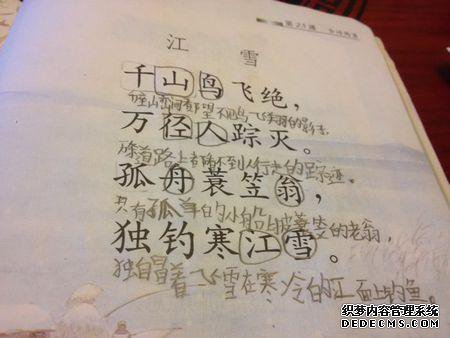 第21课 古诗两首
江 雪
千山鸟飞绝，
万径人踪灭。
条道路上都看不到人行走的踪迹。
孤舟蓑笠翁，
只有孤单的小船上披蓑笠的老翁，
独钓寒江雪。
独自冒着飞雪在寒冷的江面上钓鱼。
织梦内容管理系统
DEDECMS.COM